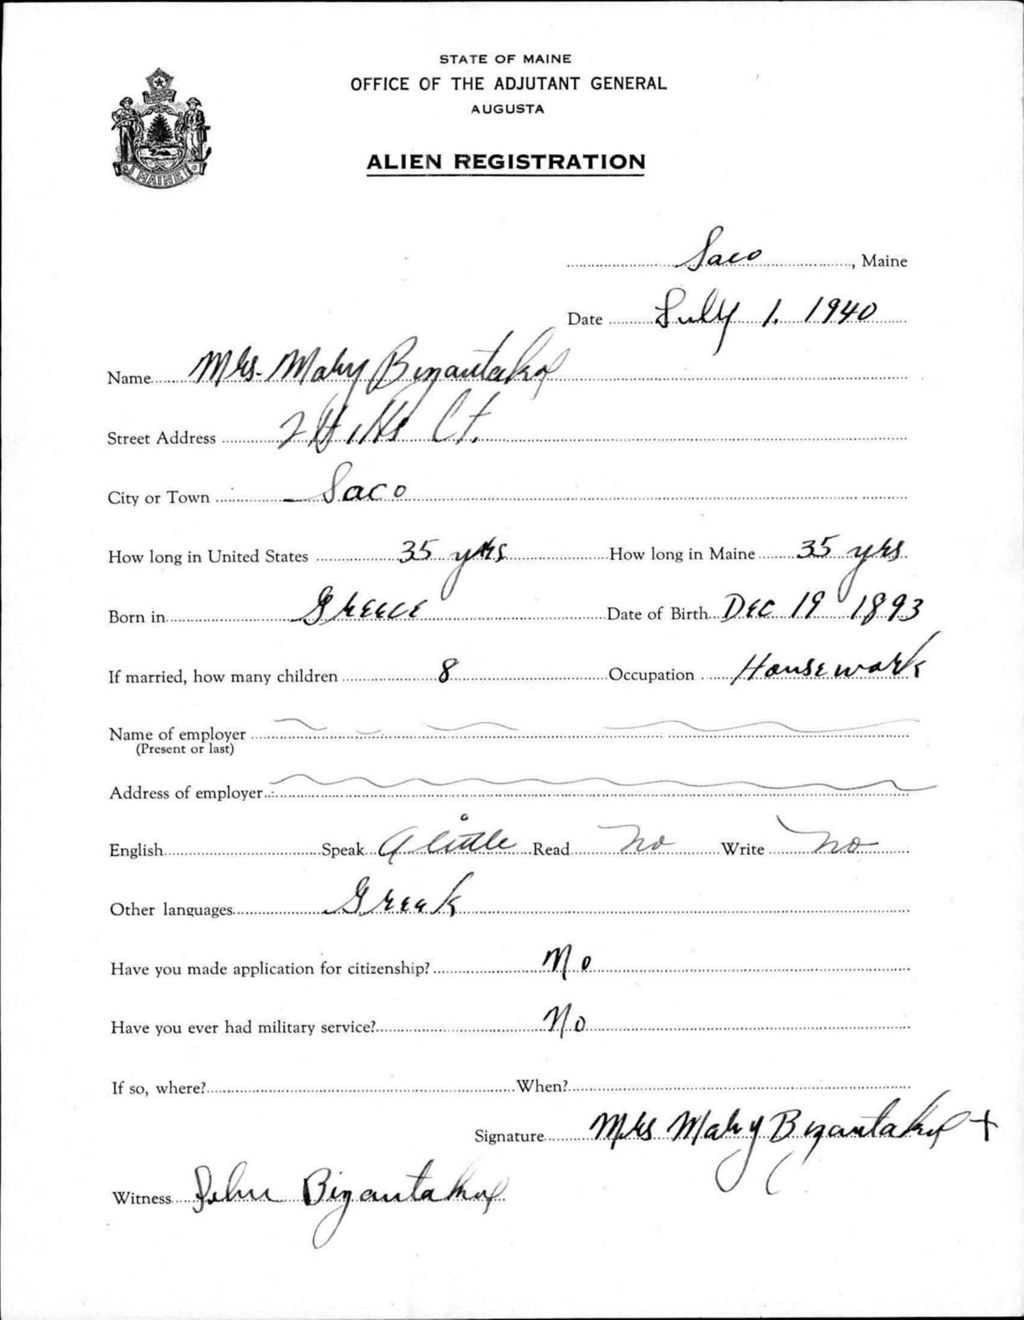 STATE OF MAINE
OFFICE OF THE ADJUTANT GENERAL
AUGUSTA
ALIEN REGISTRATION
MAINE
Saco, Maine
Date July 1. 1940
Name Mrs. Mary Bizantakos
Street Address 2 Hills Ct.
City or Town Saco
How long in United States 35 yrs How long in Maine 35 yrs
Born in Greece Date of Birth Dec 19 1893
If married, how many children 8 Occupation Housework
Name of employer
(Present or last)
Address of employer
English Speak A little Read No Write No
Other languages Greek
Have you made application for citizenship? No
Have you ever had military service? No
If so, where? When?
Signature Mrs Mary Bizantakos +
Witness John Bizantakos